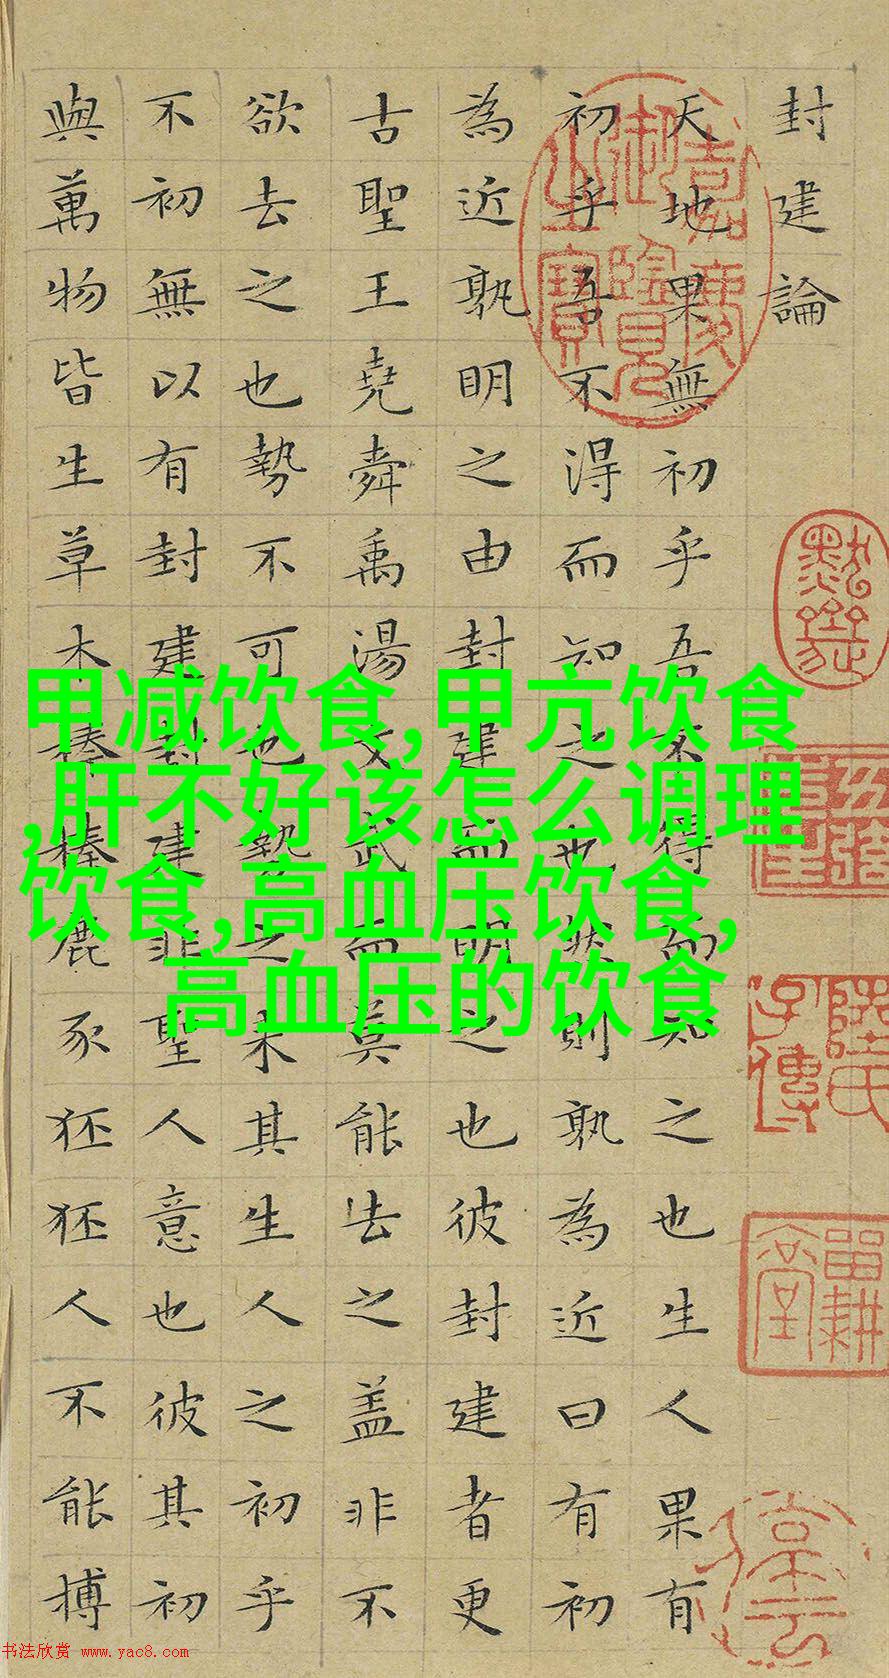 封建論
天地果無初乎吾不得而知之也生人果有
初乎吾不得而知之也然則孰為近曰有初
為近孰明之由封建而明之也彼封建者更
古聖王堯舜禹湯文武而莫能去之盖非不
欲去之也勢不可也勢之来其生人之初乎
不初無以有封建封建非聖人意也彼其初
與萬物皆生草木榛榛鹿豕狉狉人不能搏
嘉慶御覽之寶
甲减饮食,甲亢饮食
,肝不好该怎么调理
饮食,高血压饮食,
高血压的饮食
书法欣赏 www.yac8.com